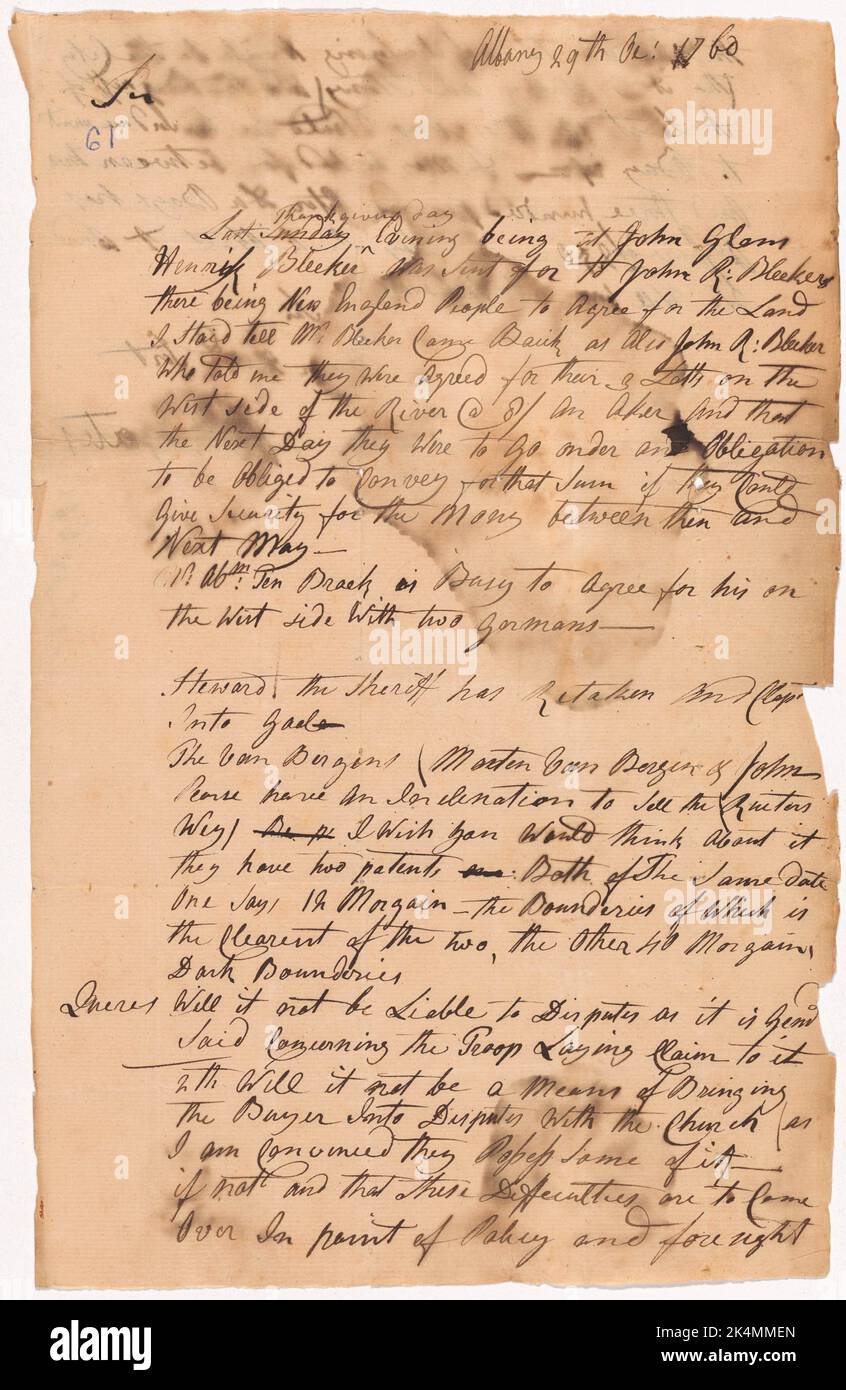 Albany 29th 1760
Sir
61
Thanksgiving day
Last Sunday Evining being at John Glens
Henrik Bleeker was Sent for to John R: Bleekers
there being New England People to Agree for the Land
I Staid till Mr. Bleeker Came Back as also John R: Bleeker
Who Told me they were Agreed for their Lotts on the
West side of the River @ 8/ an Aker and that
the Next Day they were to Go onder an Obligation
to be Obliged to Convey for that Sum if they Could
Give Security for the Mony between then and
Next May—
Mr. Abm. Ten Broek is Busy to Agree for his on
the West side With two Germans—
Steward the Sheriff has Retaken and Clap
Into Goal
The Van Bergens (Marten Van Bergen & John
Person have an Inclenation to Sell the (Ruiters
Wey) I Wish you Would think About it
they have two patents Both of The Same Date
One Says 12 Morgain—the Bounderies of Which is
the Clearest of the two, the Other 40 Morgain,
Dark Bounderies
Queres Will it not be Liable to Disputes as it is Gend
Said Concerning the Troop Laying Claim to it
2th Will it not be a Means of Bringing
the Buyer Into Disputes With the Church (as
I am Convinced they Possess Some of it—
if not and that these Difficulties are to Come
Over In point of Policy and foresight
alamy
Image ID: 2K4MMEN
www.alamy.com